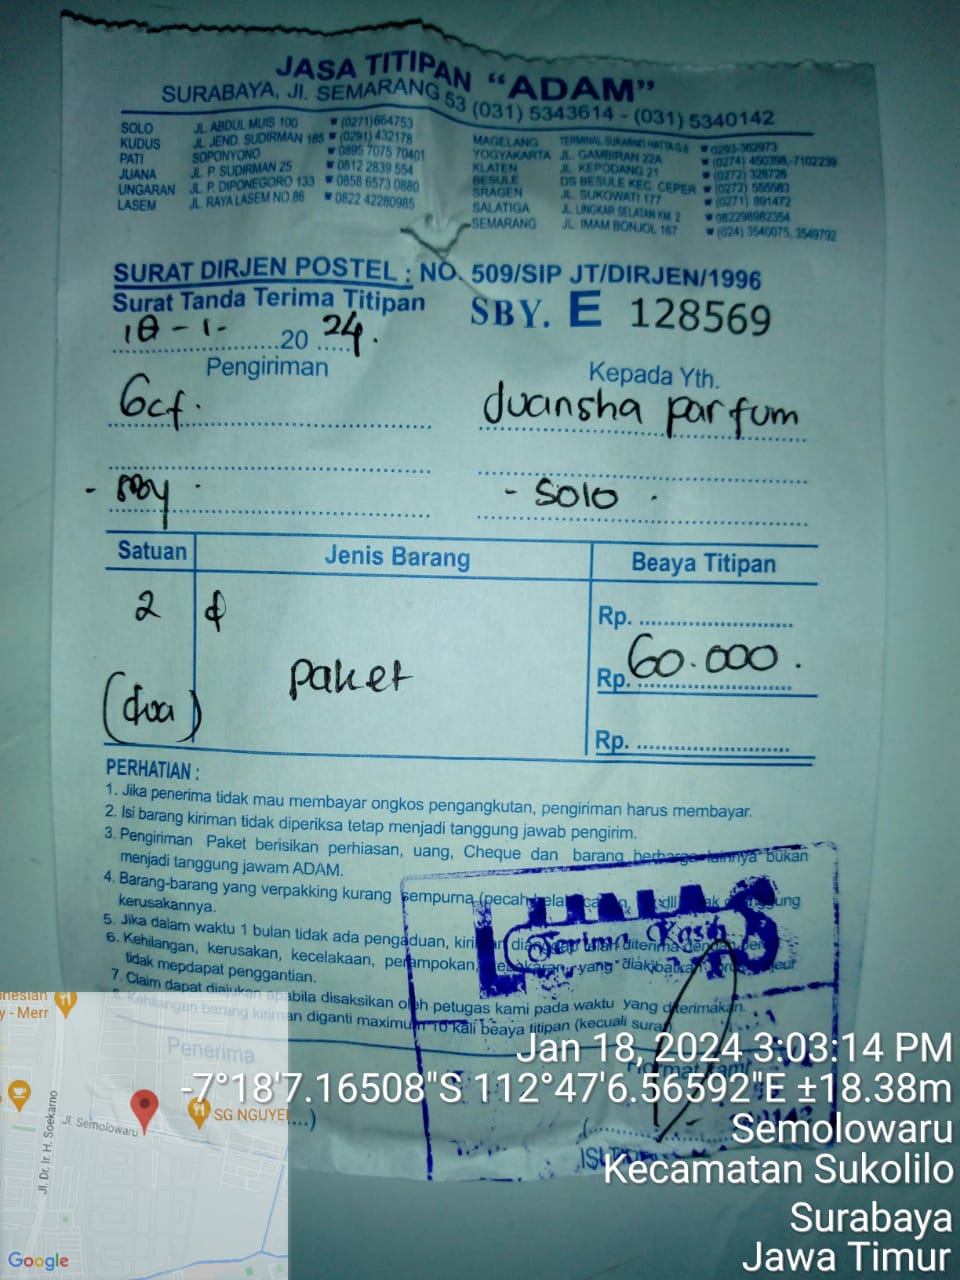 JASA TITIPAN "ADAM"
SURABAYA, Jl. SEMARANG 53 (031) 5343614 - (031) 5340142
SOLO JL. ABDUL MUIS 100 (0271)664753
KUDUS JL. JEND. SUDIRMAN 185 (0291) 432178
PATI SOPONYONO 0895 7075 70401
JUANA JL. P. SUDIRMAN 25 0812 2839 554
UNGARAN JL. P. DIPONEGORO 133 0858 6573 0880
LASEM JL. RAYA LASEM NO.86 0822 42280985
MAGELANG TERMINAL SUKARNO HATTA 0293-362973
YOGYAKARTA JL. GAMBIRAN 22A (0274) 450398,-7102239
KLATEN JL. KEPODANG 21 (0272) 328728
BESULE DS BESULE KEC. CEPER (0272) 555583
SRAGEN JL. SUKOWATI 177 (0271) 891472
SALATIGA JL. LINGKAR SELATAN KM 2 082298982354
SEMARANG JL. IMAM BONJOL 167 (024) 3540075, 3549792
SURAT DIRJEN POSTEL : NO. 509/SIP JT/DIRJEN/1996
Surat Tanda Terima Titipan SBY. E 128569
18 - 1 - 20 24.
Pengiriman Kepada Yth.
Gcf. duansha parfum
- sby . - Solo .
Satuan Jenis Barang Beaya Titipan
2 Rp.
Paket Rp. 60.000.
(dua)
Rp.
PERHATIAN :
1. Jika penerima tidak mau membayar ongkos pengangkutan, pengiriman harus membayar.
2. Isi barang kiriman tidak diperiksa tetap menjadi tanggung jawab pengirim.
3. Pengiriman Paket berisikan perhiasan, uang, Cheque dan barang berharga lainnya bukan
menjadi tanggung jawam ADAM.
4. Barang-barang yang verpakking kurang sempurna (pecah
kerusakannya.
5. Jika dalam waktu 1 bulan tidak ada pengaduan, diterima dengan
6. Kehilangan, kerusakan, kecelakaan, perampokan, yang diakibatkan
tidak mepdapat penggantian.
7. Claim dapat diajukan apabila disaksikan oleh petugas kami pada waktu yang diterimakan.
8. Kehilangan barang kiriman diganti maximum 10 kali beaya titipan (kecuali surat
LUNAS
Terima Kasih
Penerima
Hormat kami
Jan 18, 2024 3:03:14 PM
-7°18'7.16508"S 112°47'6.56592"E ±18.38m
Semolowaru
Kecamatan Sukolilo
Surabaya
Jawa Timur
y - Merr
Jl. Dr. Ir. H. Soekarno
Jl. Semolowaru
SG NGUYE
Google